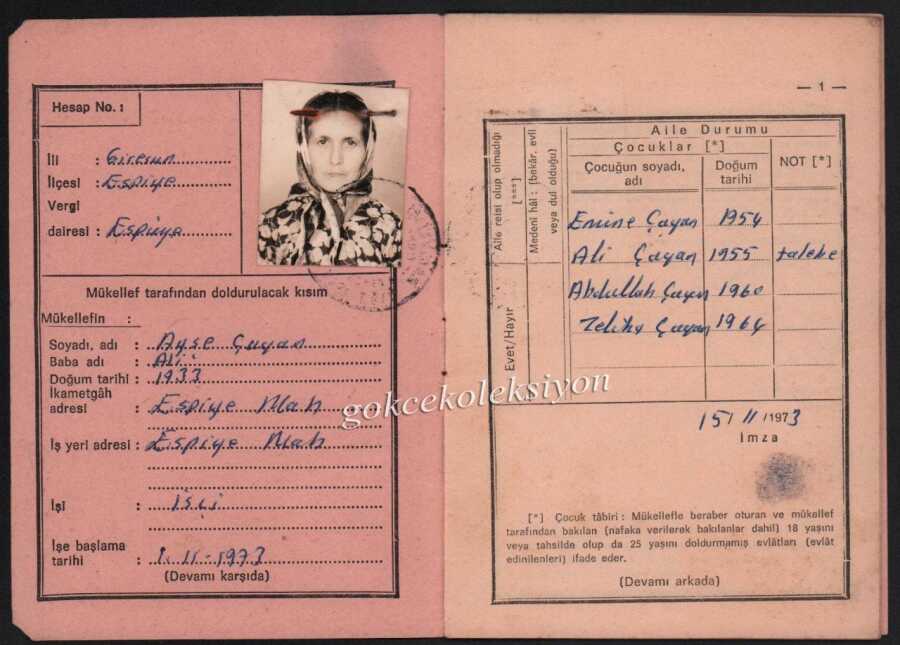 Hesap No. :
İli : Giresun
İlçesi : Espiye
Vergi
dairesi : Espiye
Mükellef tarafından doldurulacak kısım
Mükellefin :
Soyadı, adı : Ayşe Çayan
Baba adı : Ali
Doğum tarihi : 1933
İkametgâh
adresi : Espiye Mah
İş yeri adresi : Espiye Mah
İşi : işçi
İşe başlama
tarihi : 1-11-1973
(Devamı karşıda)
— 1 —
Aile reisi olup olmadığı
[***]
Evet/Hayır
Medenî hâli : (bekâr, evli
veya dul olduğu)
Aile Durumu
Çocuklar [*]
Çocuğun soyadı,
adı
Doğum
tarihi
NOT [*]
Emine Çayan 1954
Ali Çayan 1955 talebe
Abdullah Çayan 1960
Çayan 1964
15/11/1973
İmza
[*] Çocuk tâbiri : Mükellefle beraber oturan ve mükellef
tarafından bakılan (nafaka verilerek bakılanlar dahil) 18 yaşını
veya tahsilde olup da 25 yaşını doldurmamış evlâtları (evlât
edinilenleri) ifade eder.
(Devamı arkada)
gokcekoleksiyon